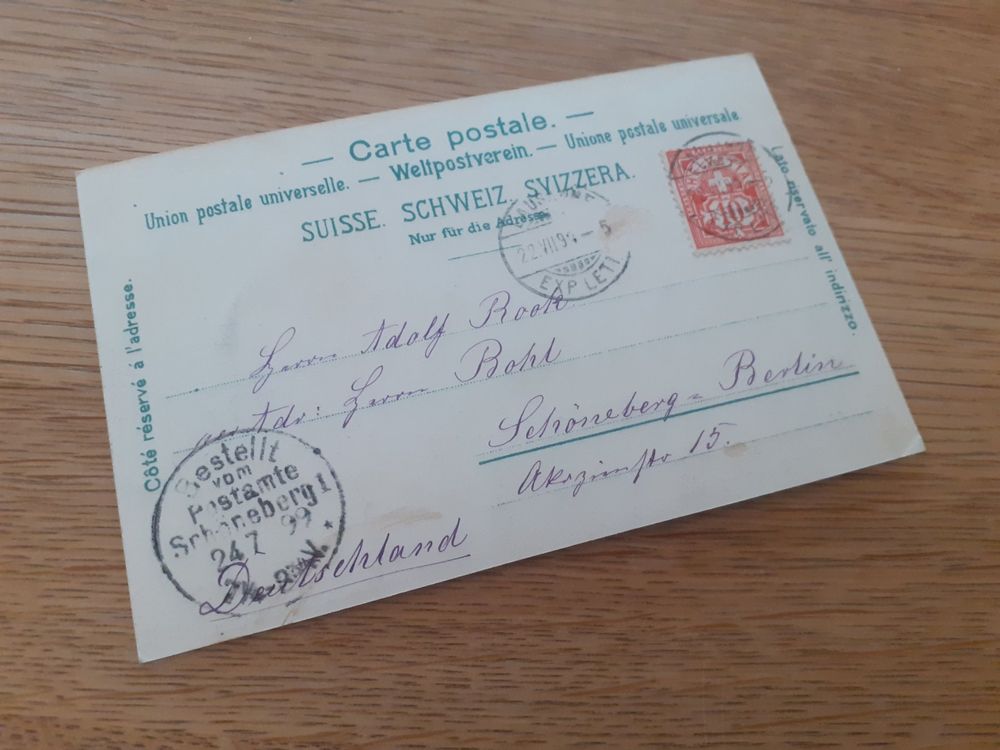 — Carte postale. —
Union postale universelle. — Weltpostverein. — Unione postale universale.
SUISSE. SCHWEIZ. SVIZZERA.
Nur für die Adresse.
Côté réservé à l'adresse.
Lato riservato all' indirizzo.
22.VII.99.- 5
EXP. LETT
10
Herrn Adolf Rook
adr: Herrn Bohl
Schöneberg-Berlin
15.
Deutschland
Bestellt
vom
Postamte
Schöneberg 1
24 7 99